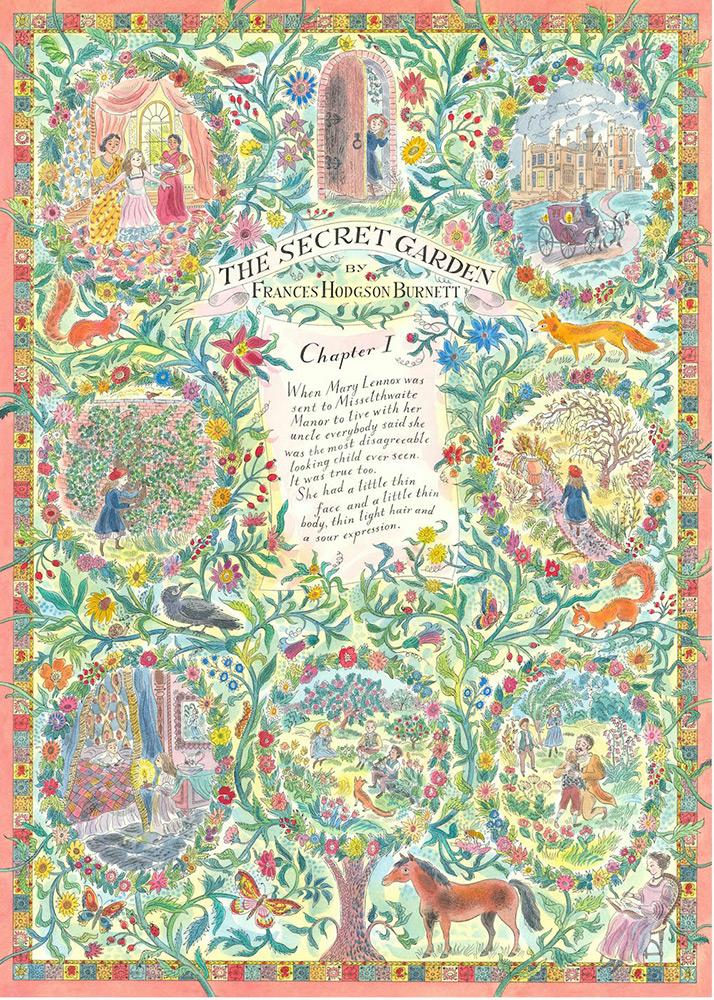 THE SECRET GARDEN
BY
FRANCES HODGSON BURNETT
Chapter I
When Mary Lennox was
sent to Misselthwaite
Manor to live with her
uncle everybody said she
was the most disagreeable
looking child ever seen.
It was true too.
She had a little thin
face and a little thin
body, thin light hair and
a sour expression.